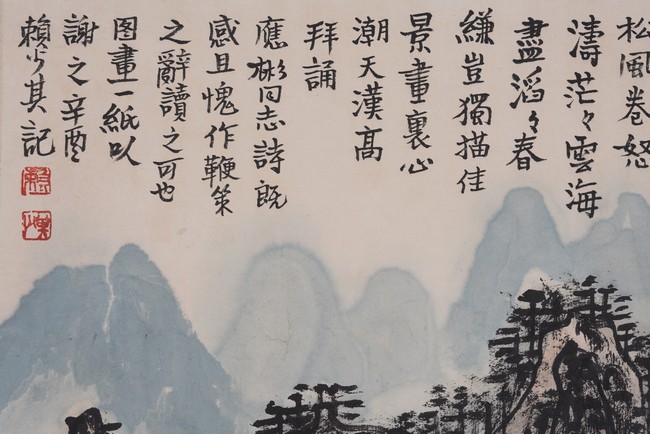 松風卷怒
濤茫々雲海
盡滔々春
縑豈獨描佳
景畫裏心
潮天漢高
拜誦
應彬同志詩既
感且愧作鞭策
之辭讀之可也
图畫一紙以
謝之辛酉
賴少其記